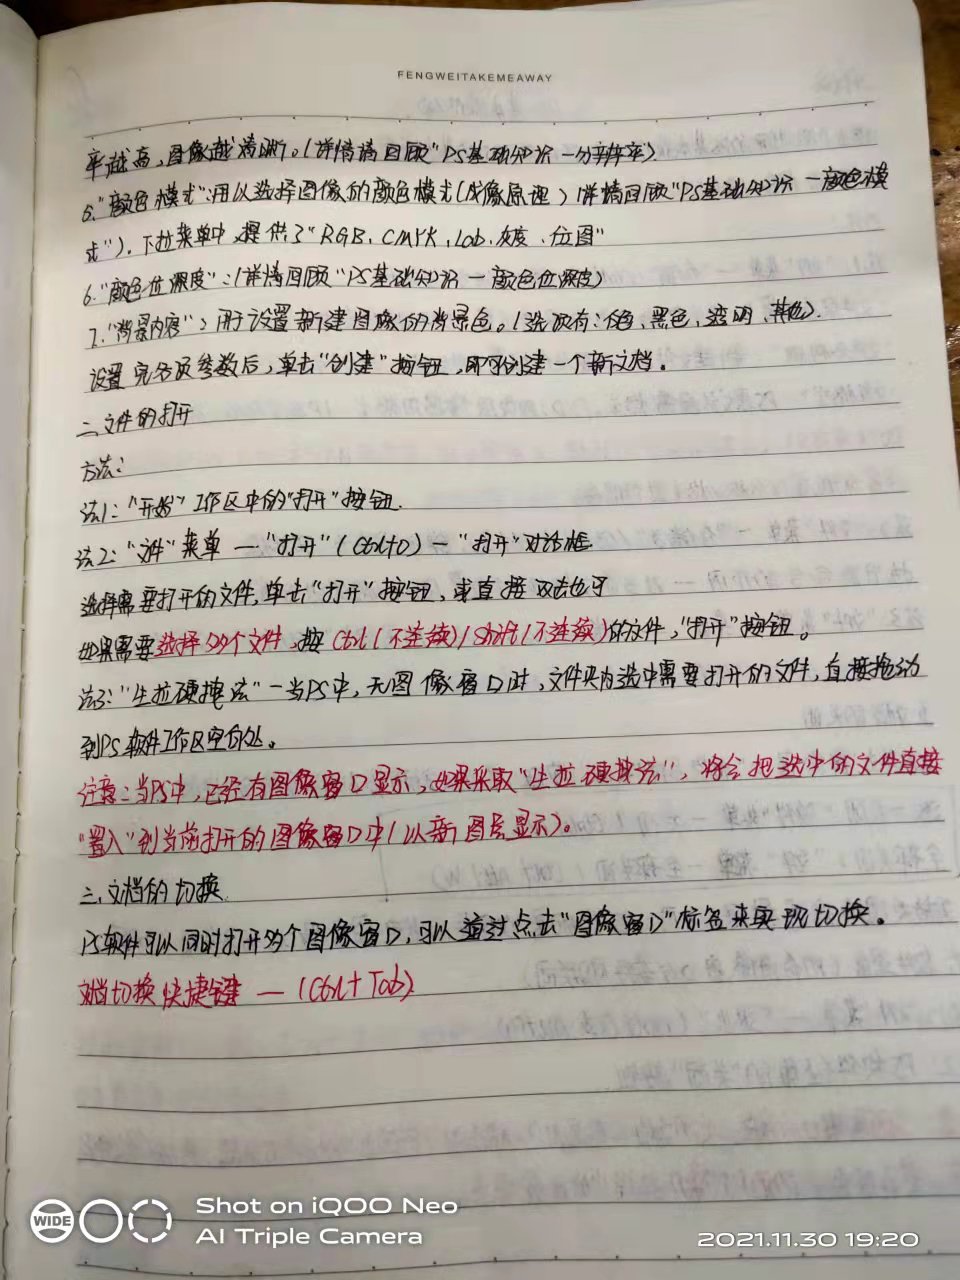 FENGWEITAKEMEAWAY
率越高，图像越清晰。（详情请回顾“PS基础知识一分辨率）
5.“颜色模式”：用以选择图像的颜色模式（成像原理）（详情回顾“PS基础知识一颜色模
式”）.下拉菜单中，提供了“RGB、CMYK、Lab、灰度、位图”
6.“颜色位深度”：（详情回顾“PS基础知识一颜色位深度）
7.“背景内容”：用于设置新建图像的背景色。（选项有：白色、黑色、透明、其他）.
设置完各项参数后，单击“创建”按钮，即可创建一个新文档。
二、文件的打开
方法：
法1：“开始”工作区中的“打开”按钮.
法2：“文件”菜单一“打开”（Ctrl+O）一“打开”对话框
选择需要打开的文件，单击“打开”按钮，或直接双击也可
如果需要选择多个文件，按Ctrl（不连续）/Shift（不连续）的文件，“打开”按钮。
法3：“生拉硬拽法”一当PS中，无图像窗口时，文件夹内选中需要打开的文件，直接拖动
到PS软件工作区空白处。
注意：当PS中，已经有图像窗口显示，如果采取“生拉硬拽法”，将会把选中的文件直接
“置入”到当前打开的图像窗口中（以新图层显示）。
三、文档的切换
PS软件可以同时打开多个图像窗口，可以通过点击“图像窗口”标签来实现切换。
文档切换快捷键 一（Ctrl+Tab）
WIDE
Shot on iQOO Neo
AI Triple Camera
2021.11.30 19:20